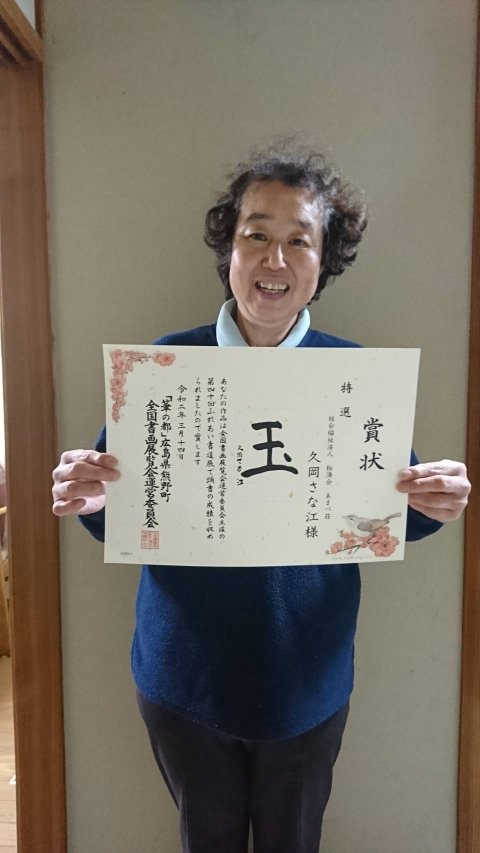 賞状
特選
社会福祉法人 柏涛会 あまべ荘
久岡さな江様
玉
久岡さな江
あなたの作品は全国書画展覧会運営委員会主催の
第四十回ふれあい書道展で頭書の成績を収め
られましたので賞します
令和二年三月十四日
「筆の都」広島県熊野町
全国書画展覧会運営委員会